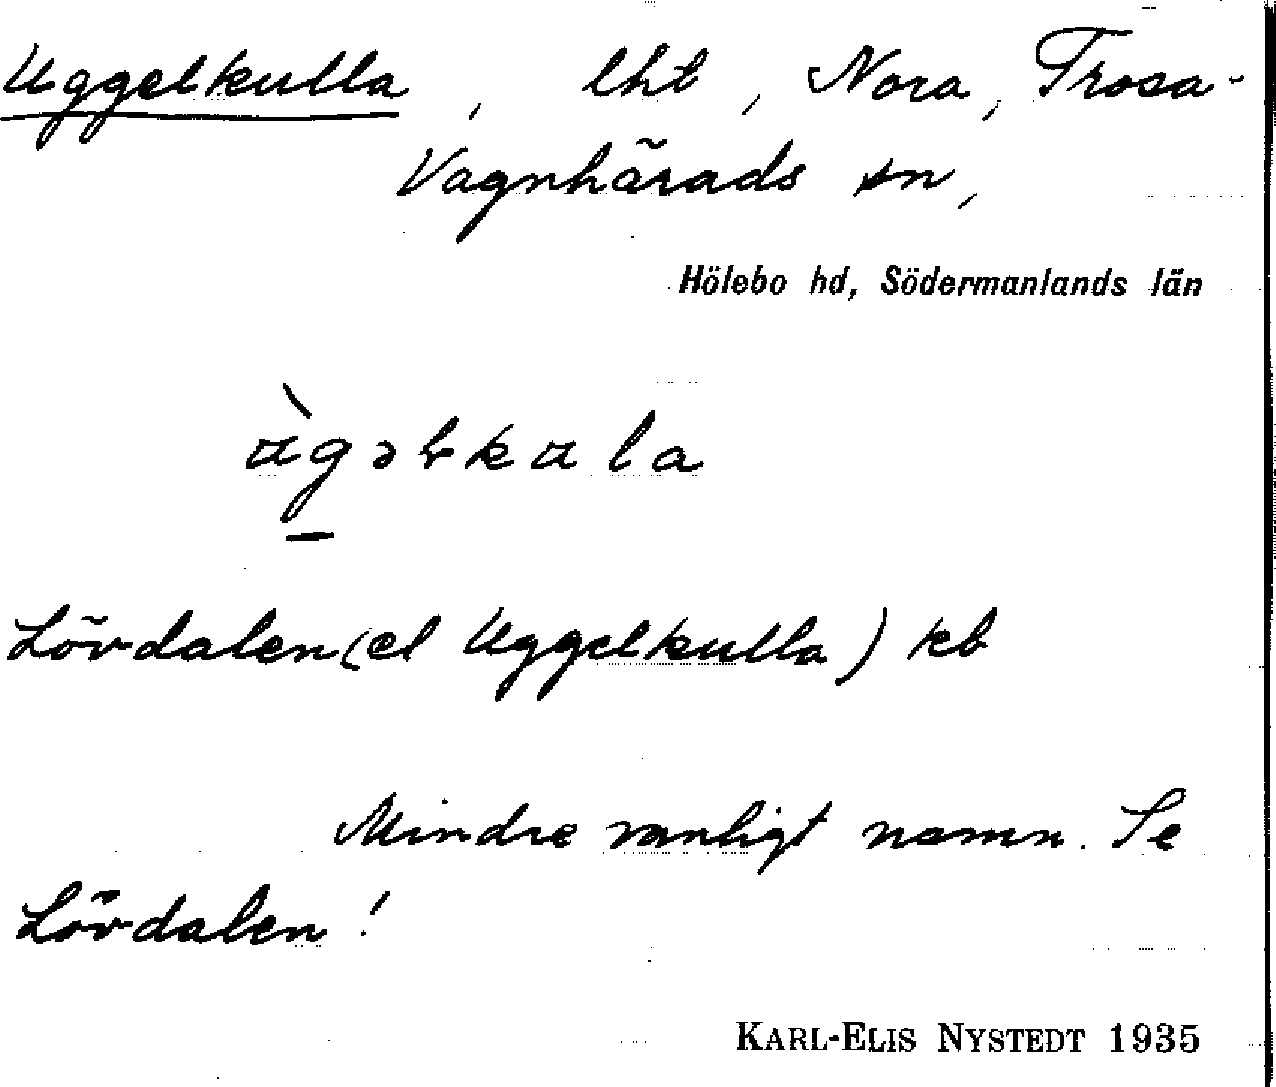 Uggelkulla, lht, Nora, Trosa-
Vagnhärads sn,
Hölebo hd, Södermanlands län
Lövdalen (el Uggelkulla) kb
Mindre vanligt namn. Se
Lövdalen!
KARL-ELIS NYSTEDT 1935